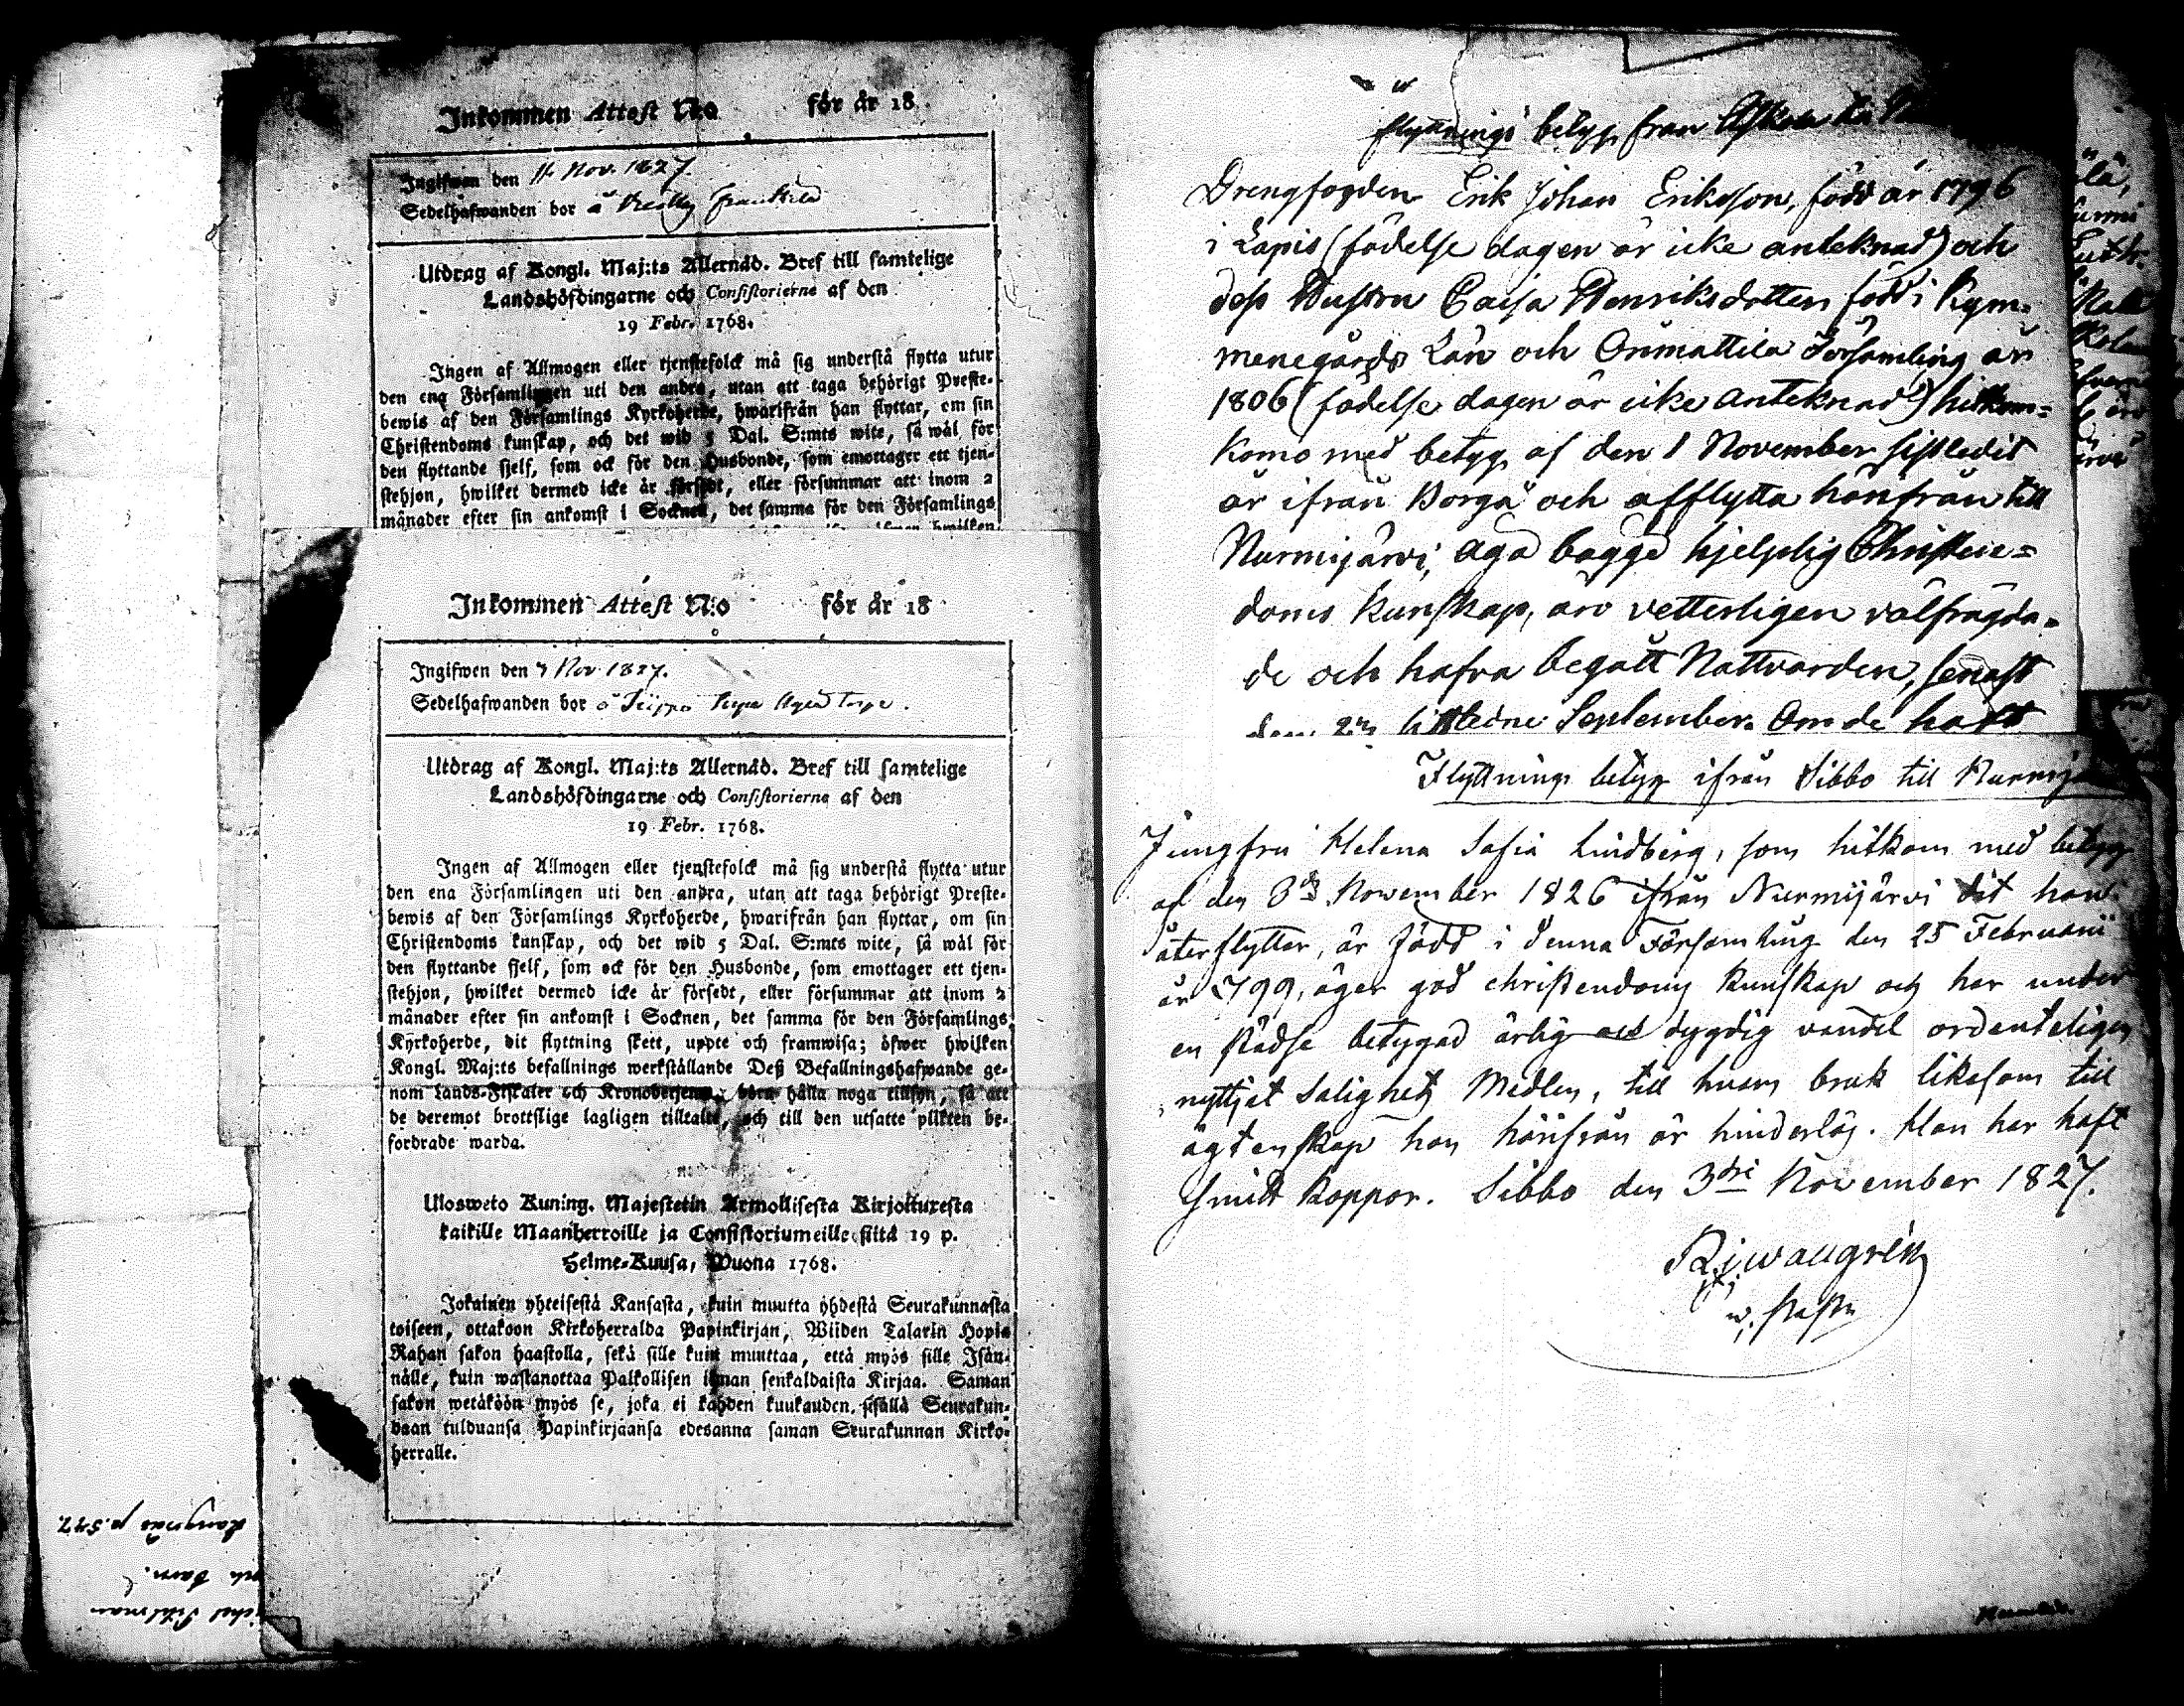 Inkommen Attest N:o för år 18
Ingifwen den 11 Nov. 1827.
Sedelhafwanden bor å
Utdrag af Kongl. Maj:ts Allernåd. Bref till samtelige
Landshöfdingarne och Consistorierne af den
19 Febr. 1768.
Ingen af Allmogen eller tjenstefolck må sig understå flytta utur
den ena Församlingen uti den andra, utan att taga behörigt Preste-
bewis af den Församlings Kyrkoherde, hwarifrån han flyttar, om sin
Christendoms kunskap, och det wid 5 Dal. S:mts wite, så wäl för
den flyttande sjelf, som ock för den Husbonde, som emottager ett tjen-
stehjon, hwilket dermed icke är försedt, eller försummar att inom 2
månader efter sin ankomst i Socknen, det samma för den Församlings
Inkommen Attest N:o för år 18
Ingifwen den 7 Nov 1827.
Sedelhafwanden bor å
Utdrag af Kongl. Maj:ts Allernåd. Bref till samtelige
Landshöfdingarne och Consistorierne af den
19 Febr. 1768.
Ingen af Allmogen eller tjenstefolck må sig understå flytta utur
den ena Församlingen uti den andra, utan att taga behörigt Preste-
bewis af den Församlings Kyrkoherde, hwarifrån han flyttar, om sin
Christendoms kunskap, och det wid 5 Dal. S:mts wite, så wäl för
den flyttande sjelf, som ock för den Husbonde, som emottager ett tjen-
stehjon, hwilket dermed icke är försedt, eller försummar att inom 2
månader efter sin ankomst i Socknen, det samma för den Församlings
Kyrkoherde, dit flyttning skett, uppte och framwisa; öfwer hwilken
Kongl. Maj:ts befallnings werkställande Deß Befallningshafwande ge-
nom Lands-Fiskaler och Kronobetjente, böra hålla noga tillsyn, så att
de deremot brottslige lagligen tilltalte, och till den utsatte plikten be-
fordrade warda.
Ulosweto Kuning. Majestetin Armollisesta Kirjoituxesta
kaikille Maanherroille ja Consistoriumeille siitä 19 p.
Helme-Kuusa, Wuona 1768.
Jokainen yhteisestä Kansasta, kuin muutta yhdestä Seurakunnasta
toiseen, ottakoon Kirkoherralda Papinkirjan, Wiiden Talarin Hopia
Rahan sakon haastolla, sekä sille kuin muuttaa, että myös sille Isän-
nälle, kuin wastanottaa Palkollisen ilman senkaldaista Kirjaa. Saman
sakon wetäköön myös se, joka ei kahden kuukauden, sisällä Seurakun-
daan tulduansa Papinkirjaansa edesanna saman Seurakunnan Kirko-
herralle.
Flyttnings betyg från
Drengfogden Erik Johan Eriksson, född år 1796
i Lapis (födelse dagen är icke anteknad) och
dess Hustru Caisa Henriksdotter född i Kym-
menegårds Län och Församling år
1806 (födelse dagen är icke anteknad) hitkom-
komo med betyg af den 1 November sistledit
år ifrån Borgå och afflytta härifrån till
Nurmijärvi, äga bägge hjelplig Christen-
doms kunskap, äro vetterligen välfrägda-
de och hafva begått Nattvarden, senast
September. Om de haft
Flyttnings betyg ifrån Sibbo till
Jungfru Helena Sofia Lindberg, som hitkom med betyg
af den 3de November 1826 ifrån Nurmijärvi dit hon
återflyttar, är född i denna Församling den 25 Februarii
år 1799, äger god christendoms kunskap och har under
en städse betygad ärlig och dygdig vandel ordenteligen
nyttjat Salighets Medlen, till hvars bruk likasom till
ägtenskap hon härifrån är hinderlös. Hon har haft
Smitt koppor. Sibbo den 3dri November 1827.
p. 547.
och barn.